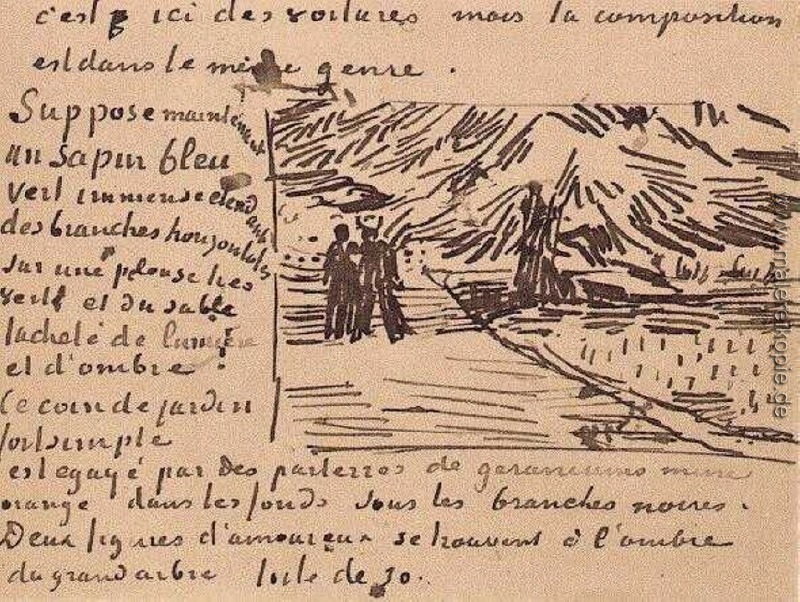 c'est ici des voitures mais la composition
est dans le même genre.
Suppose maintenant
un sapin bleu
vert immense etendant
des branches horizontales
sur une pelouse tres
verte et du sable
tacheté de lumière
et d'ombre.
Ce coin de jardin
fort simple
est egayé par des parterres de geraniums mine
orange dans les fonds sous les branches noires.
Deux figures d'amoureux se trouvent à l'ombre
du grand arbre toile de 30.
www.malereikopie.de